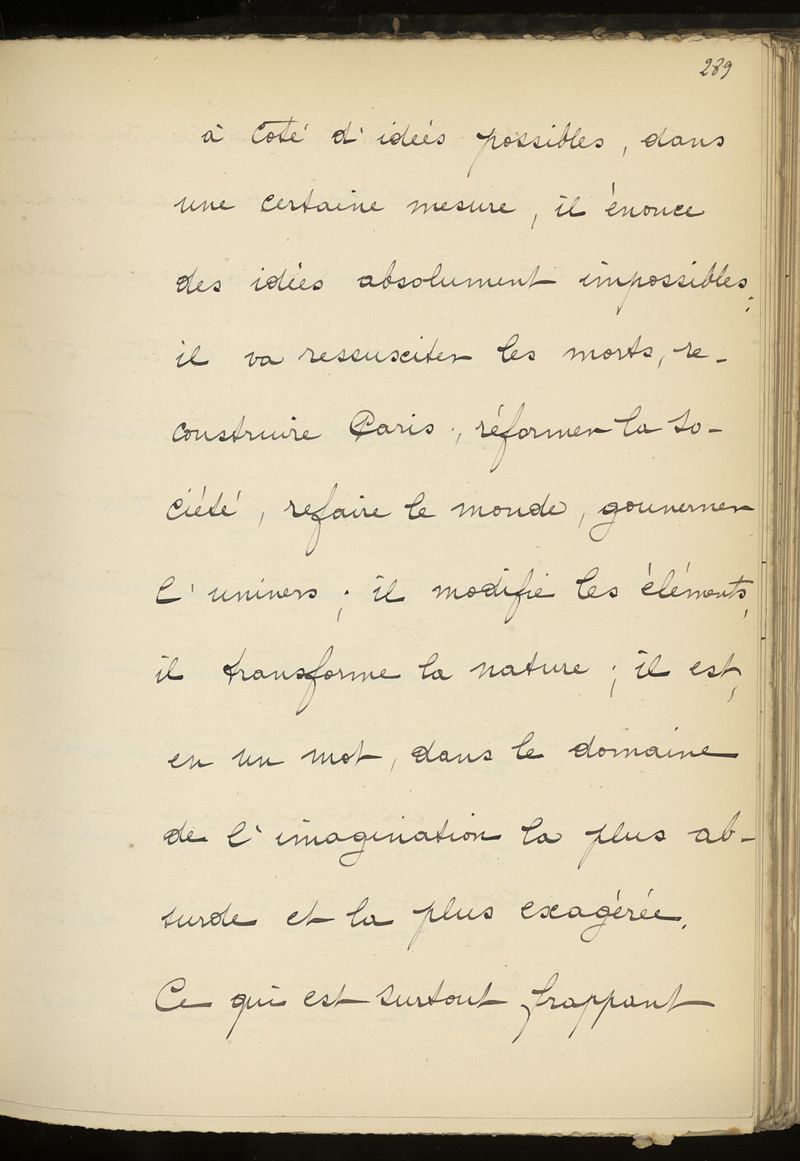 289
à coté d'ideés possibles, dans
une certaine mesure, il énonce
des idées absolument impossibles;
il va ressusciter les morts, re-
construire Paris, réformer la so-
ciété, refaire le monde, gouverner
l'univers; il modifie les éléments,
il transforme la nature; il est,
en un mot, dans le domaine
de l'imagination la plus ab-
surde et la plus exagérée.
Ce qui est surtout frappant